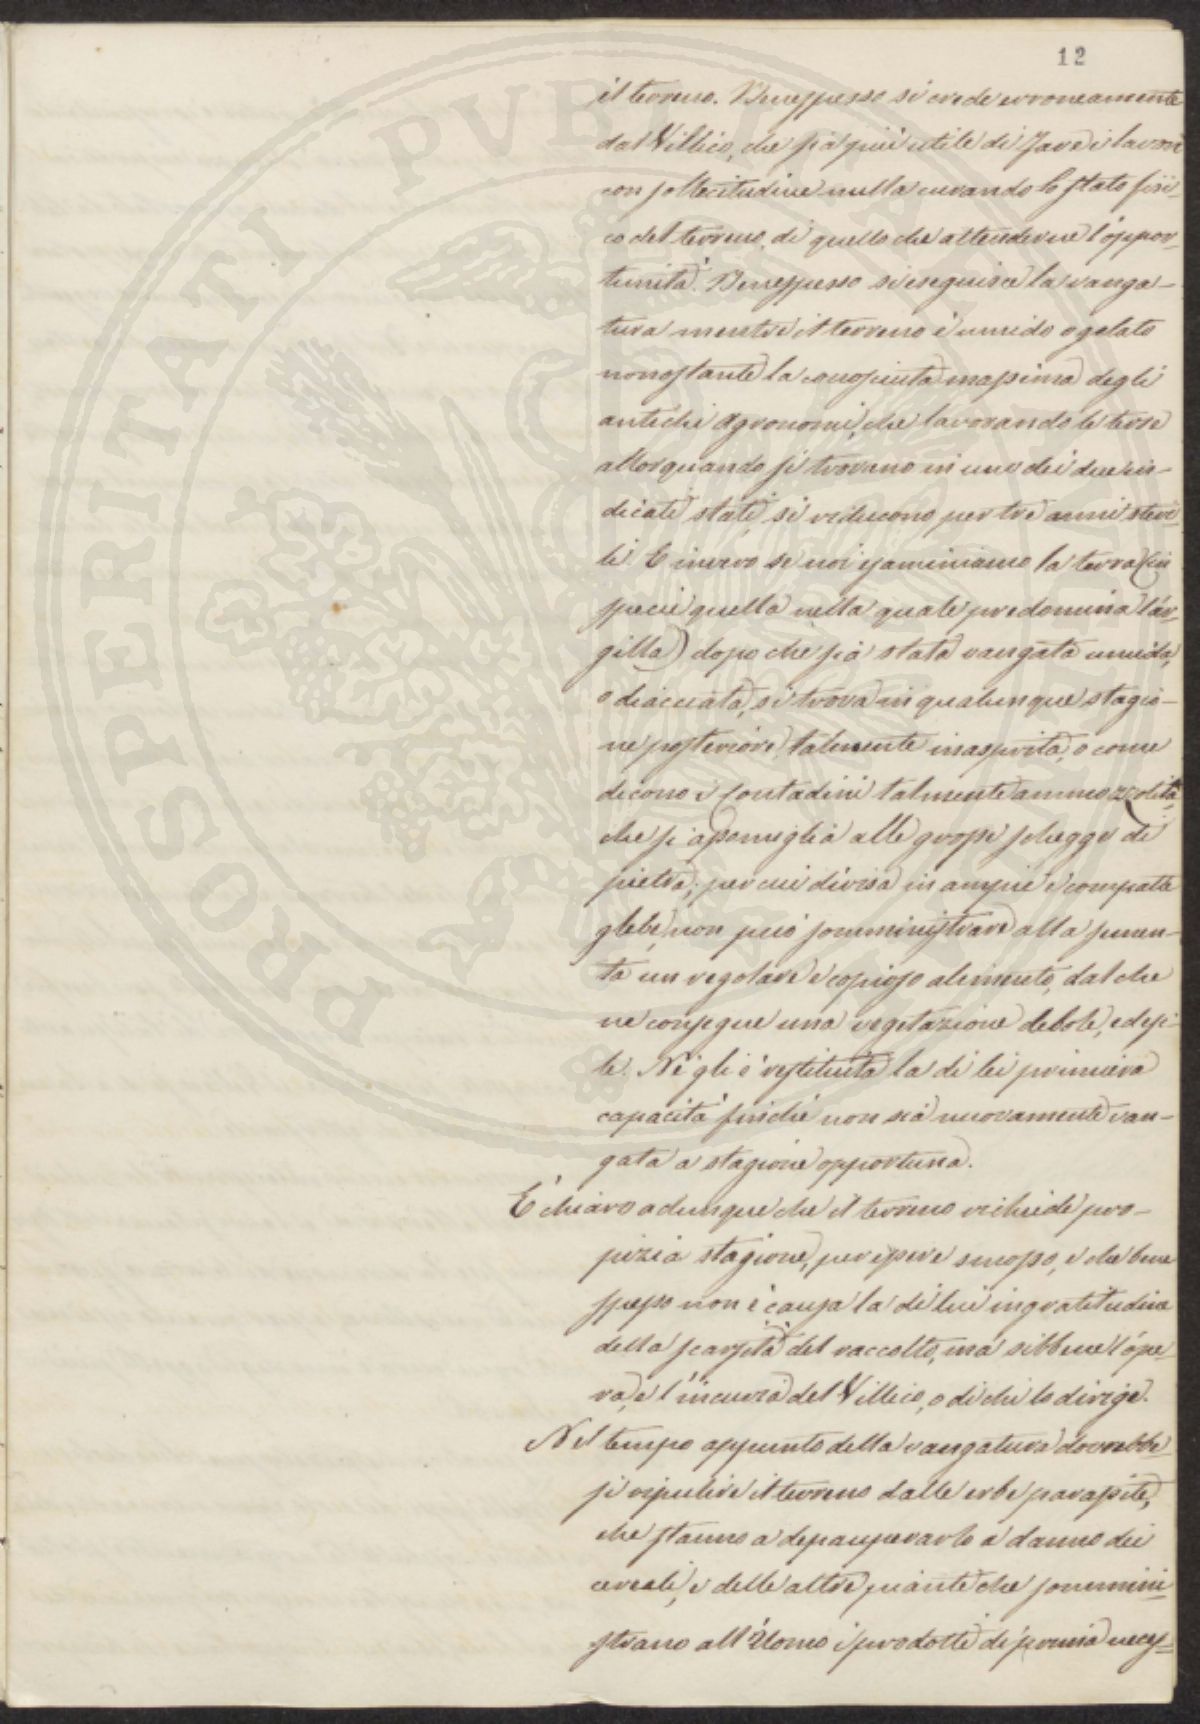 12
il terreno. Benespesso si crede erroneamente
dal Villico, che sia più utile di fare i lavori
con sollecitudine nulla curando lo stato fisi-
co del terreno, di quello che attenderne l'oppor-
tunità. Benespesso si eseguisce la vanga-
tura mentre il terreno è umido o gelato
nonostante la conosciuta massima degli
antichi Agronomi, che lavorando le terre
allorquando si trovano in uno dei due in-
dicati stati, si riducono per tre anni steri-
li. E invero se noi esaminiamo la terra (in
specie quella nella quale predomina l'ar-
gilla) dopo che sia stata vangata umida,
o diacciata, si trova in qualunque stagio-
ne posteriore, talmente inasprita, o come
dicono i Contadini talmente ammozzolita
che si assomiglia alle grosse schegge di
pietra; per cui divisa in ampie e compatte
glebe, non può somministrare alla semen-
ta un regolare e copioso alimento, dal che
ne consegue una vegetazione debole, ed esi-
le. Nè gli è restituita la di lei primiera
capacità finchè non sia nuovamente van-
gata a stagione opportuna.
È chiaro adunque che il terreno richiede pro-
pizia stagione, per essere smosso, e che bene
spesso non è causa la di lui ingratitudine
della scarsità del raccolto, ma sibbene l'ope-
ra, e l'incuria del Villico, o di chi lo dirige.
Nel tempo appunto della vangatura dovrebbe
si ripulire il terreno dalle erbe parassite,
che stanno a depauperarlo a danno dei
cereali, e delle altre piante che sommini-
strano all'Uomo i prodotti di prima neces-
PROSPERITATI PVBLICAE